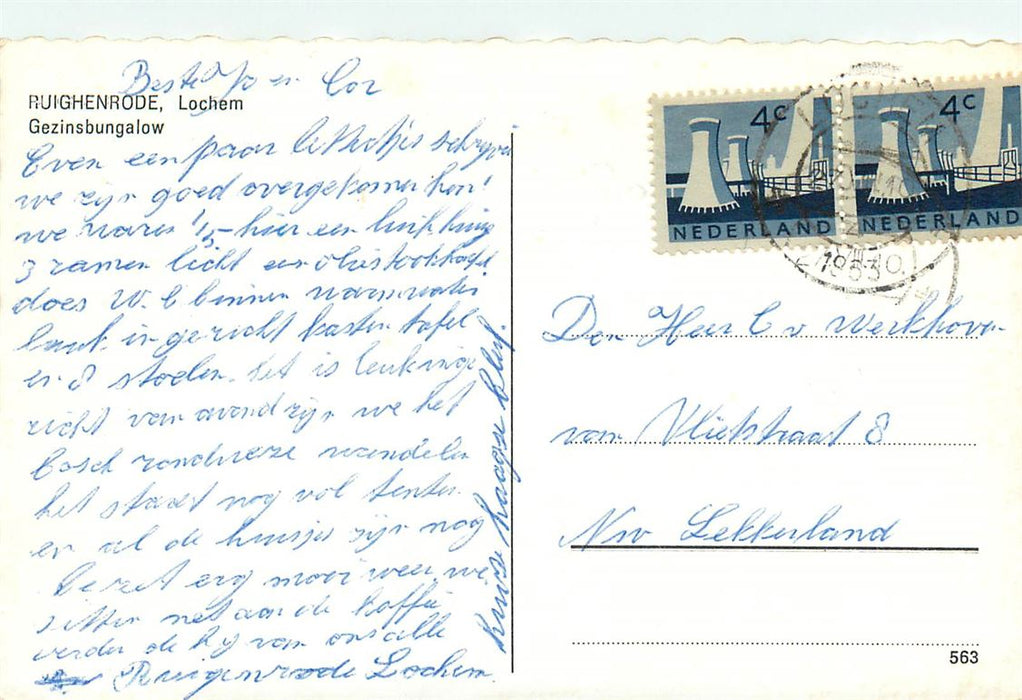 Beste Jo en Cor
RUIGHENRODE, Lochem
Gezinsbungalow
Even een paar schrijven
we zijn goed overgekomen hon!
we waren hier een
3 ramen licht en
does W.C binnen warmwater
bank in gericht kasten tafel
en 8 stoelen. het is leuk
van avond zijn we het
bosch wandelen
het staat nog vol tenten
en al de huisjes zijn nog
bezet erg mooi weer. we
zitten net aan de koffie
verder de van ons alle
Ruigenrode Lochem.
4c
NEDERLAND
4c
NEDERLAND
1963
Den Heer C v Werkhoven
van Vlietstraat 8
Nw Lekkerland
563